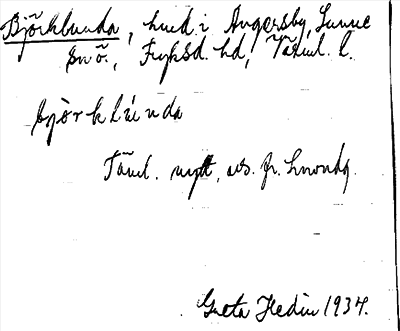 Björklunda, hmd. i Ängersby, Sunne
sn ö., Fryksd. hd, Värml. l.
björklúnda
Täml. nytt, avs. fr. hmondg.
Greta Hedin 1934.